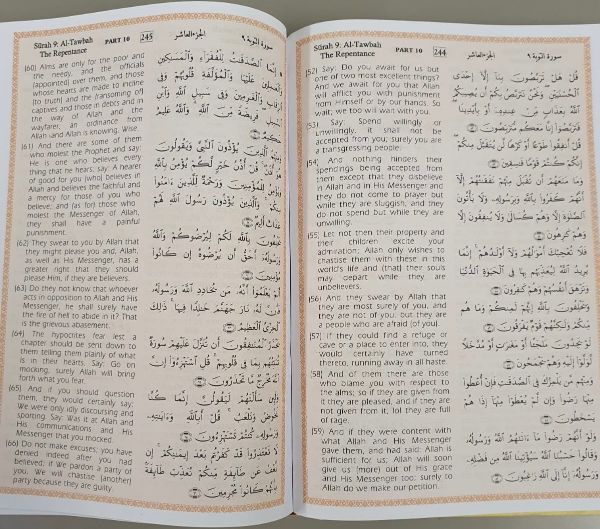 Sūrah 9: Al-Tawbah
The Repentance
PART 10
244
الجزء العاشر
سورة التوبة ٩
(52) Say: Do you await for us but
one of two most excellent things?
And we await for you that Allah
will afflict you with punishment
from Himself or by our hands. So
wait; we too will wait with you.
(53) Say: Spend willingly or
unwillingly, it shall not be
accepted from you; surely you are
a transgressing people.
(54) And nothing hinders their
spendings being accepted from
them except that they disbelieve
in Allah and in His Messenger and
they do not come to prayer but
while they are sluggish, and they
do not spend but while they are
unwilling.
(55) Let not then their property and
their children excite your
admiration; Allah only wishes to
chastise them with these in this
world's life and (that) their souls
may depart while they are
unbelievers.
(56) And they swear by Allah that
they are most surely of you, and
they are not of you, but they are
a people who are afraid (of you).
(57) If they could find a refuge or
cave or a place to enter into, they
would certainly have turned
thereto, running away in all haste.
(58) And of them there are those
who blame you with respect to
the alms; so if they are given from
it they are pleased, and if they are
not given from it, lo! they are full
of rage.
(59) And if they were content with
what Allah and His Messenger
gave them, and had said: Allah is
sufficient for us; Allah will soon
give us (more) out of His grace
and His Messenger too: surely to
Allah do we make our petition.
قُلْ هَلْ تَرَبَّصُونَ بِنَآ إِلَّآ إِحْدَى
ٱلْحُسْنَيَيْنِ وَنَحْنُ نَتَرَبَّصُ بِكُمْ أَن يُصِيبَكُمُ
ٱللَّهُ بِعَذَابٍ مِّنْ عِندِهِۦٓ أَوْ بِأَيْدِينَا
فَتَرَبَّصُوٓا۟ إِنَّا مَعَكُم مُّتَرَبِّصُونَ
قُلْ أَنفِقُوا۟ طَوْعًا أَوْ كَرْهًا لَّن يُتَقَبَّلَ مِنكُمْ
إِنَّكُمْ كُنتُمْ قَوْمًا فَٰسِقِينَ
وَمَا مَنَعَهُمْ أَن تُقْبَلَ مِنْهُمْ نَفَقَٰتُهُمْ إِلَّآ
أَنَّهُمْ كَفَرُوا۟ بِٱللَّهِ وَبِرَسُولِهِۦ وَلَا يَأْتُونَ
ٱلصَّلَوٰةَ إِلَّا وَهُمْ كُسَالَىٰ وَلَا يُنفِقُونَ إِلَّا
وَهُمْ كَٰرِهُونَ
فَلَا تُعْجِبْكَ أَمْوَٰلُهُمْ وَلَآ أَوْلَٰدُهُمْ إِنَّمَا
يُرِيدُ ٱللَّهُ لِيُعَذِّبَهُم بِهَا فِى ٱلْحَيَوٰةِ ٱلدُّنْيَا
وَتَزْهَقَ أَنفُسُهُمْ وَهُمْ كَٰفِرُونَ
وَيَحْلِفُونَ بِٱللَّهِ إِنَّهُمْ لَمِنكُمْ وَمَا هُم
مِّنكُمْ وَلَٰكِنَّهُمْ قَوْمٌ يَفْرَقُونَ
لَوْ يَجِدُونَ مَلْجَـًٔا أَوْ مَغَٰرَٰتٍ أَوْ مُدَّخَلًا
لَّوَلَّوْا۟ إِلَيْهِ وَهُمْ يَجْمَحُونَ
وَمِنْهُم مَّن يَلْمِزُكَ فِى ٱلصَّدَقَٰتِ فَإِنْ أُعْطُوا۟
مِنْهَا رَضُوا۟ وَإِن لَّمْ يُعْطَوْا۟ مِنْهَآ إِذَا هُمْ
يَسْخَطُونَ
وَلَوْ أَنَّهُمْ رَضُوا۟ مَآ ءَاتَىٰهُمُ ٱللَّهُ وَرَسُولُهُۥ
وَقَالُوا۟ حَسْبُنَا ٱللَّهُ سَيُؤْتِينَا ٱللَّهُ مِن فَضْلِهِۦ
وَرَسُولُهُۥٓ إِنَّآ إِلَى ٱللَّهِ رَٰغِبُونَ
Sūrah 9: Al-Tawbah
The Repentance
PART 10
245
الجزء العاشر
سورة التوبة ٩
(60) Alms are only for the poor and
the needy, and the officials
(appointed) over them, and those
whose hearts are made to incline
(to truth) and the (ransoming of)
captives and those in debts and in
the way of Allah and the
wayfarer; an ordinance from
Allah; and Allah is Knowing, Wise.
(61) And there are some of them
who molest the Prophet and say:
He is one who believes every
thing that he hears; say: A hearer
of good for you (who) believes in
Allah and believes the faithful and
a mercy for those of you who
believe; and (as for) those who
molest the Messenger of Allah,
they shall have a painful
punishment.
(62) They swear to you by Allah that
they might please you and, Allah,
as well as His Messenger, has a
greater right that they should
please Him, if they are believers.
(63) Do they not know that whoever
acts in opposition to Allah and His
Messenger, he shall surely have
the fire of hell to abide in it? That
is the grievous abasement.
(64) The hypocrites fear lest a
chapter should be sent down to
them telling them plainly of what
is in their hearts. Say: Go on
mocking, surely Allah will bring
forth what you fear.
(65) And if you should question
them, they would certainly say:
We were only idly discoursing and
sporting. Say: Was it at Allah and
His communications and His
Messenger that you mocked.
(66) Do not make excuses; you have
denied indeed after you had
believed; if We pardon a party of
you, We will chastise (another)
party because they are guilty.
إِنَّمَا ٱلصَّدَقَٰتُ لِلْفُقَرَآءِ وَٱلْمَسَٰكِينِ
وَٱلْعَٰمِلِينَ عَلَيْهَا وَٱلْمُؤَلَّفَةِ قُلُوبُهُمْ وَفِى
ٱلرِّقَابِ وَٱلْغَٰرِمِينَ وَفِى سَبِيلِ ٱللَّهِ وَٱبْنِ
ٱلسَّبِيلِ فَرِيضَةً مِّنَ ٱللَّهِ وَٱللَّهُ عَلِيمٌ
حَكِيمٌ
وَمِنْهُمُ ٱلَّذِينَ يُؤْذُونَ ٱلنَّبِىَّ وَيَقُولُونَ
هُوَ أُذُنٌ قُلْ أُذُنُ خَيْرٍ لَّكُمْ يُؤْمِنُ بِٱللَّهِ
وَيُؤْمِنُ لِلْمُؤْمِنِينَ وَرَحْمَةٌ لِّلَّذِينَ ءَامَنُوا۟
مِنكُمْ وَٱلَّذِينَ يُؤْذُونَ رَسُولَ ٱللَّهِ لَهُمْ
عَذَابٌ أَلِيمٌ
يَحْلِفُونَ بِٱللَّهِ لَكُمْ لِيُرْضُوكُمْ وَٱللَّهُ
وَرَسُولُهُۥٓ أَحَقُّ أَن يُرْضُوهُ إِن كَانُوا۟
مُؤْمِنِينَ
أَلَمْ يَعْلَمُوٓا۟ أَنَّهُۥ مَن يُحَادِدِ ٱللَّهَ وَرَسُولَهُۥ
فَأَنَّ لَهُۥ نَارَ جَهَنَّمَ خَٰلِدًا فِيهَا ذَٰلِكَ
ٱلْخِزْىُ ٱلْعَظِيمُ
يَحْذَرُ ٱلْمُنَٰفِقُونَ أَن تُنَزَّلَ عَلَيْهِمْ سُورَةٌ
تُنَبِّئُهُم بِمَا فِى قُلُوبِهِمْ قُلِ ٱسْتَهْزِءُوٓا۟ إِنَّ
ٱللَّهَ مُخْرِجٌ مَّا تَحْذَرُونَ
وَلَئِن سَأَلْتَهُمْ لَيَقُولُنَّ إِنَّمَا كُنَّا
نَخُوضُ وَنَلْعَبُ قُلْ أَبِٱللَّهِ وَءَايَٰتِهِۦ
وَرَسُولِهِۦ كُنتُمْ تَسْتَهْزِءُونَ
لَا تَعْتَذِرُوا۟ قَدْ كَفَرْتُم بَعْدَ إِيمَٰنِكُمْ إِن
نَّعْفُ عَن طَآئِفَةٍ مِّنكُمْ نُعَذِّبْ طَآئِفَةًۢ
بِأَنَّهُمْ كَانُوا۟ مُجْرِمِينَ